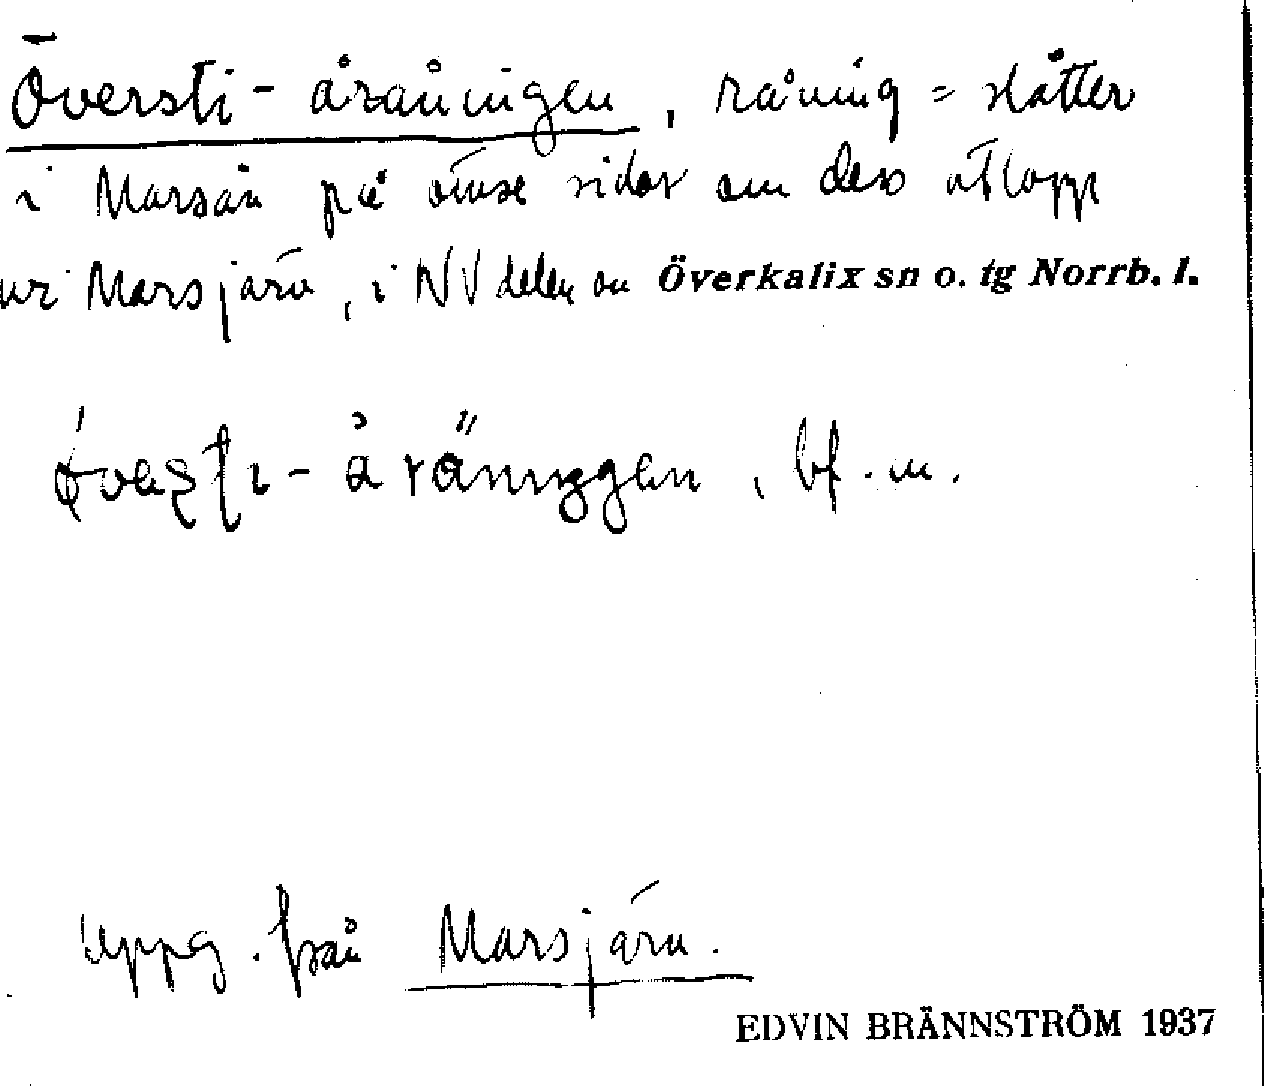 Översti-åraåningen, råning = slåtter
i Marsån på ömse sidor om dess utlopp
ur Marsjärv, i NV delen av Överkalix sn o. tg Norrb. l.
bf. m.
Uppg. från Marsjärv.
EDVIN BRÄNNSTRÖM 1937